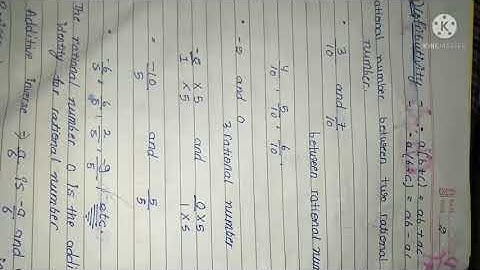 2
Distributivity = • a(b+c) = ab + ac
• a(b-c) = ab - ac
rational number between two rational
number.
• 3/10 and 7/10
between rational num
4/10, 5/10, 6/10
• -2 and 0
3 rational number
-2/1 × 5/5 and 0×5/1×5
• -10/5 and 5/5
-6/5, 6/5, 2/5, -9/5, etc.
• The rational number 0 is the addi
identity for rational number
Additive inverse ⇒ a/b is -a/b and
KINEMASTER